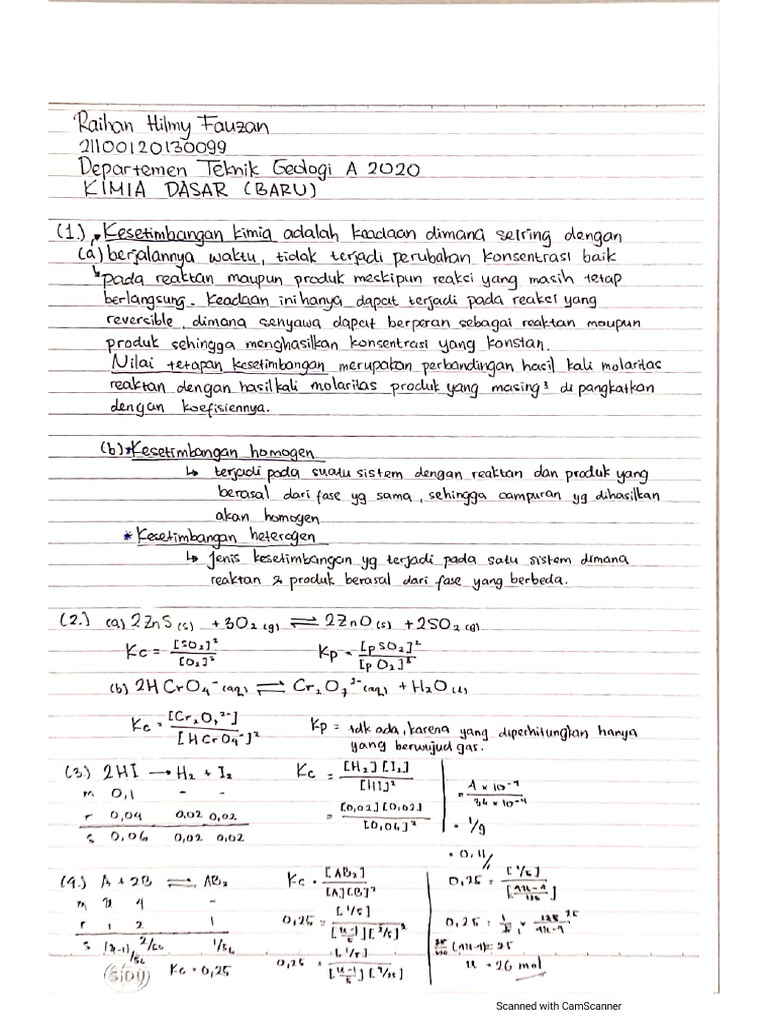 Raihan Hilmy Fauzan
21100120130099
Departemen Teknik Geologi A 2020
KIMIA DASAR (BARU)
(1.) Kesetimbangan kimia adalah keadaan dimana seiring dengan
(a) berjalannya waktu, tidak terjadi perubahan konsentrasi baik
↳ pada reaktan maupun produk meskipun reaksi yang masih tetap
berlangsung. Keadaan ini hanya dapat terjadi pada reaksi yang
reversible, dimana senyawa dapat berperan sebagai reaktan maupun
produk sehingga menghasilkan konsentrasi yang konstan.
Nilai tetapan kesetimbangan merupakan perbandingan hasil kali molaritas
reaktan dengan hasil kali molaritas produk yang masing² di pangkatkan
dengan koefisiennya.
(b) * Kesetimbangan homogen
↳ terjadi pada suatu sistem dengan reaktan dan produk yang
berasal dari fase yg sama, sehingga campuran yg dihasilkan
akan homogen
* Kesetimbangan heterogen
↳ Jenis kesetimbangan yg terjadi pada satu sistem dimana
reaktan & produk berasal dari fase yang berbeda.
(2.) (a) 2ZnS (s) + 3O₂ (g) ⇌ 2ZnO (s) + 2SO₂ (g)
Kc = [SO₂]² / [O₂]³ Kp = [pSO₂]² / [pO₂]³
(b) 2HCrO₄⁻ (aq) ⇌ Cr₂O₇²⁻ (aq) + H₂O (l)
Kc = [Cr₂O₇²⁻] / [HCrO₄⁻]² Kp = tdk ada, karena yang diperhitungkan hanya
yang berwujud gas.
(3.) 2HI → H₂ + I₂ Kc = [H₂][I₂] / [HI]² = 4 × 10⁻⁴ / 36 × 10⁻⁴
m 0,1 - -
r 0,04 0,02 0,02 = [0,02][0,02] / [0,06]² = 1/9
s 0,06 0,02 0,02 = 0,11
(4.) A + 2B ⇌ AB₂ Kc = [AB₂] / [A][B]² 0,25 = [1/5]
m x 4 -
r 1 2 1 0,25 = [1/5]
s (x-1)/5L 2/5L 1/5L
Kc = 0,25 0,25 = [1/5]
x = 26 mol
SIDU
Scanned with CamScanner